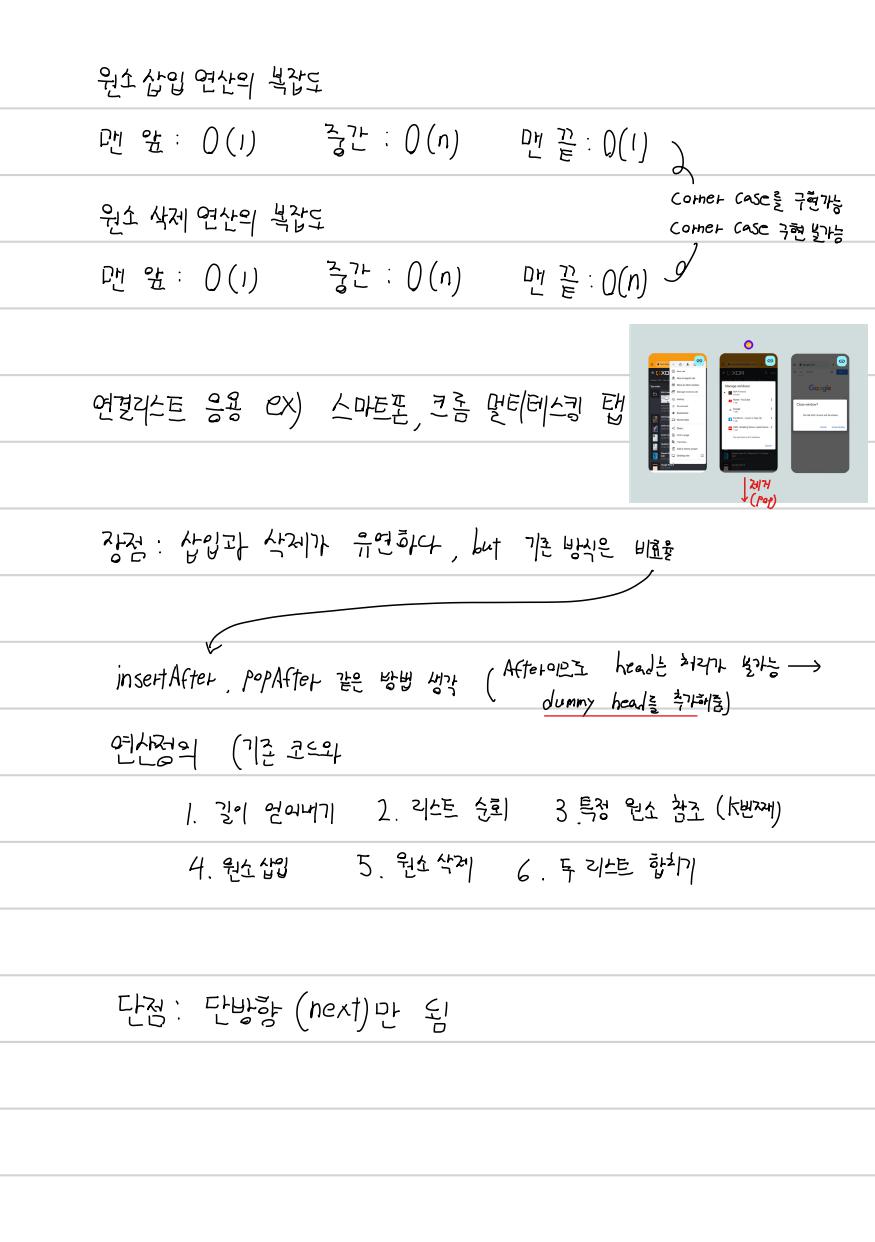 원소 삽입 연산의 복잡도
맨 앞 : O(1) 중간 : O(n) 맨 끝 : O(1)
Corner Case를 구현가능
원소 삭제 연산의 복잡도
Corner Case 구현 불가능
맨 앞 : O(1) 중간 : O(n) 맨 끝 : O(n)
연결리스트 응용 ex) 스마트폰, 크롬 멀티테스킹 탭
Google
제거
(pop)
장점 : 삽입과 삭제가 유연하다, but 기존 방식은 비효율
insertAfter, popAfter 같은 방법 생각 (After이므로 head는 처리가 불가능 →
dummy head를 추가해줌)
연산정의 (기존 코드와
1. 길이 얻어내기 2. 리스트 순회 3. 특정 원소 참조 (k번째)
4. 원소 삽입 5. 원소 삭제 6. 두 리스트 합치기
단점 : 단방향 (next)만 됨